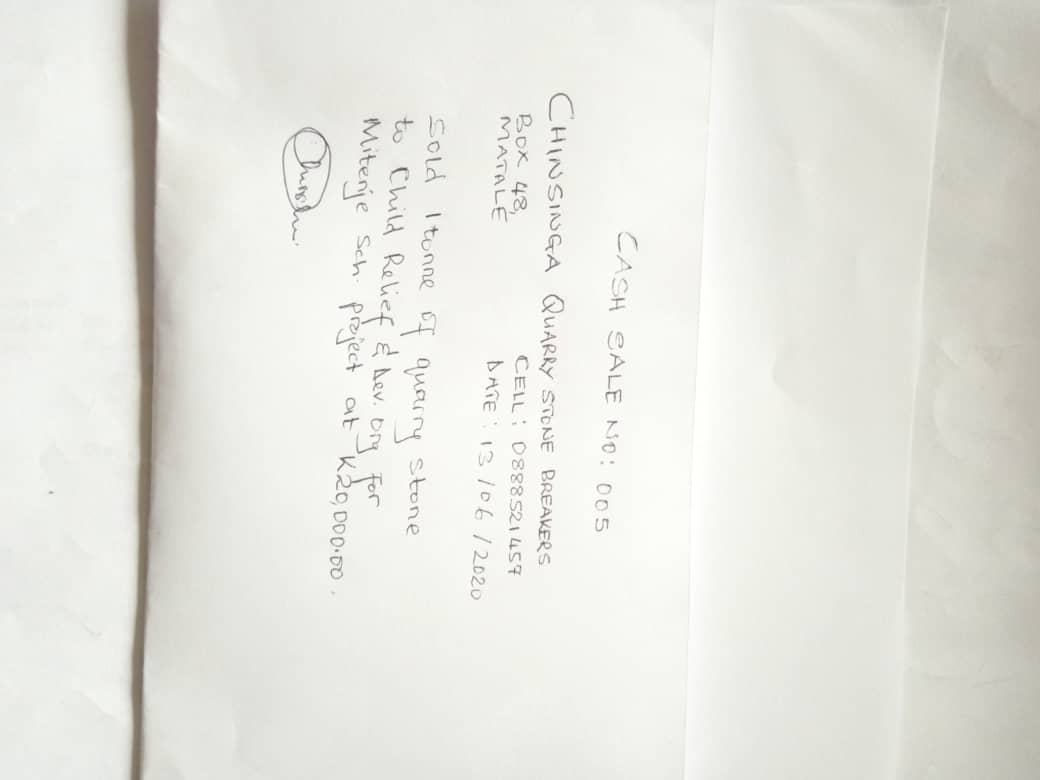 CASH SALE NO: 005
CHINSINGA QUARRY STONE BREAKERS
BOX 48, CELL: 0888521457
MATALE DATE: 13/06/2020
Sold 1 tonne of quarry stone
to Child Relief & Dev. Org for
Mitenje Sch. project at K20,000.00.